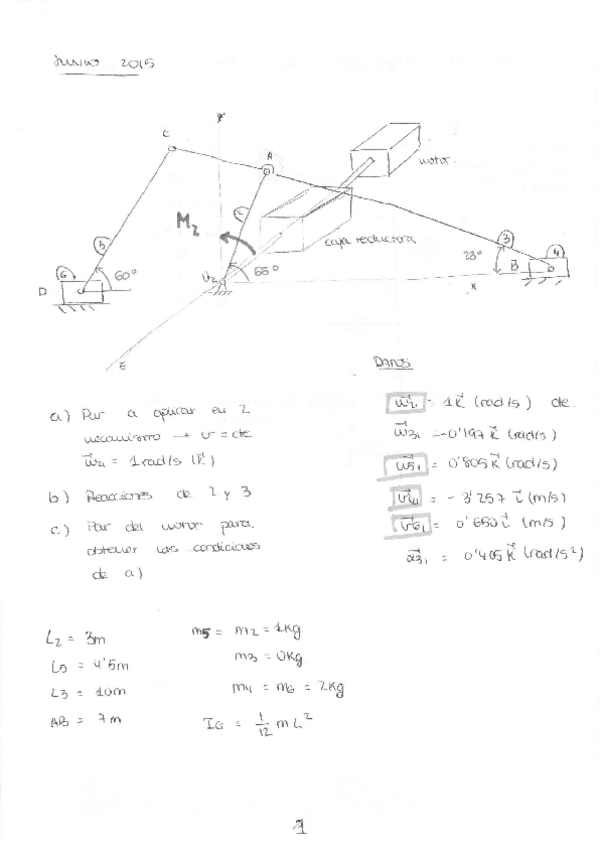 JUNIO 2015
y
C
A
motor
2
M2
caja reductora
5
3
4
6
60°
65°
23°
B
D
O2
x
E
DATOS
a) Par a aplicar en 2
mecanismo → v = cte
ω⃗21 = 1 rad/s (k⃗)
b) Reacciones de 2 y 3
c) Par del motor para
obtener las condiciones
de a)
ω⃗21 = 1k⃗ (rad/s) cte
ω⃗31 = -0'197 k⃗ (rad/s)
ω⃗51 = 0'805 k⃗ (rad/s)
v⃗41 = -3'257 i⃗ (m/s)
v⃗61 = 0'650 i⃗ (m/s)
α⃗31 = 0'405 k⃗ (rad/s²)
L2 = 3m
L5 = 4'5m
L3 = 10m
AB = 7m
m5 = m2 = 1kg
m3 = 0kg
m4 = m6 = 2kg
IG = 1/12 mL²
1